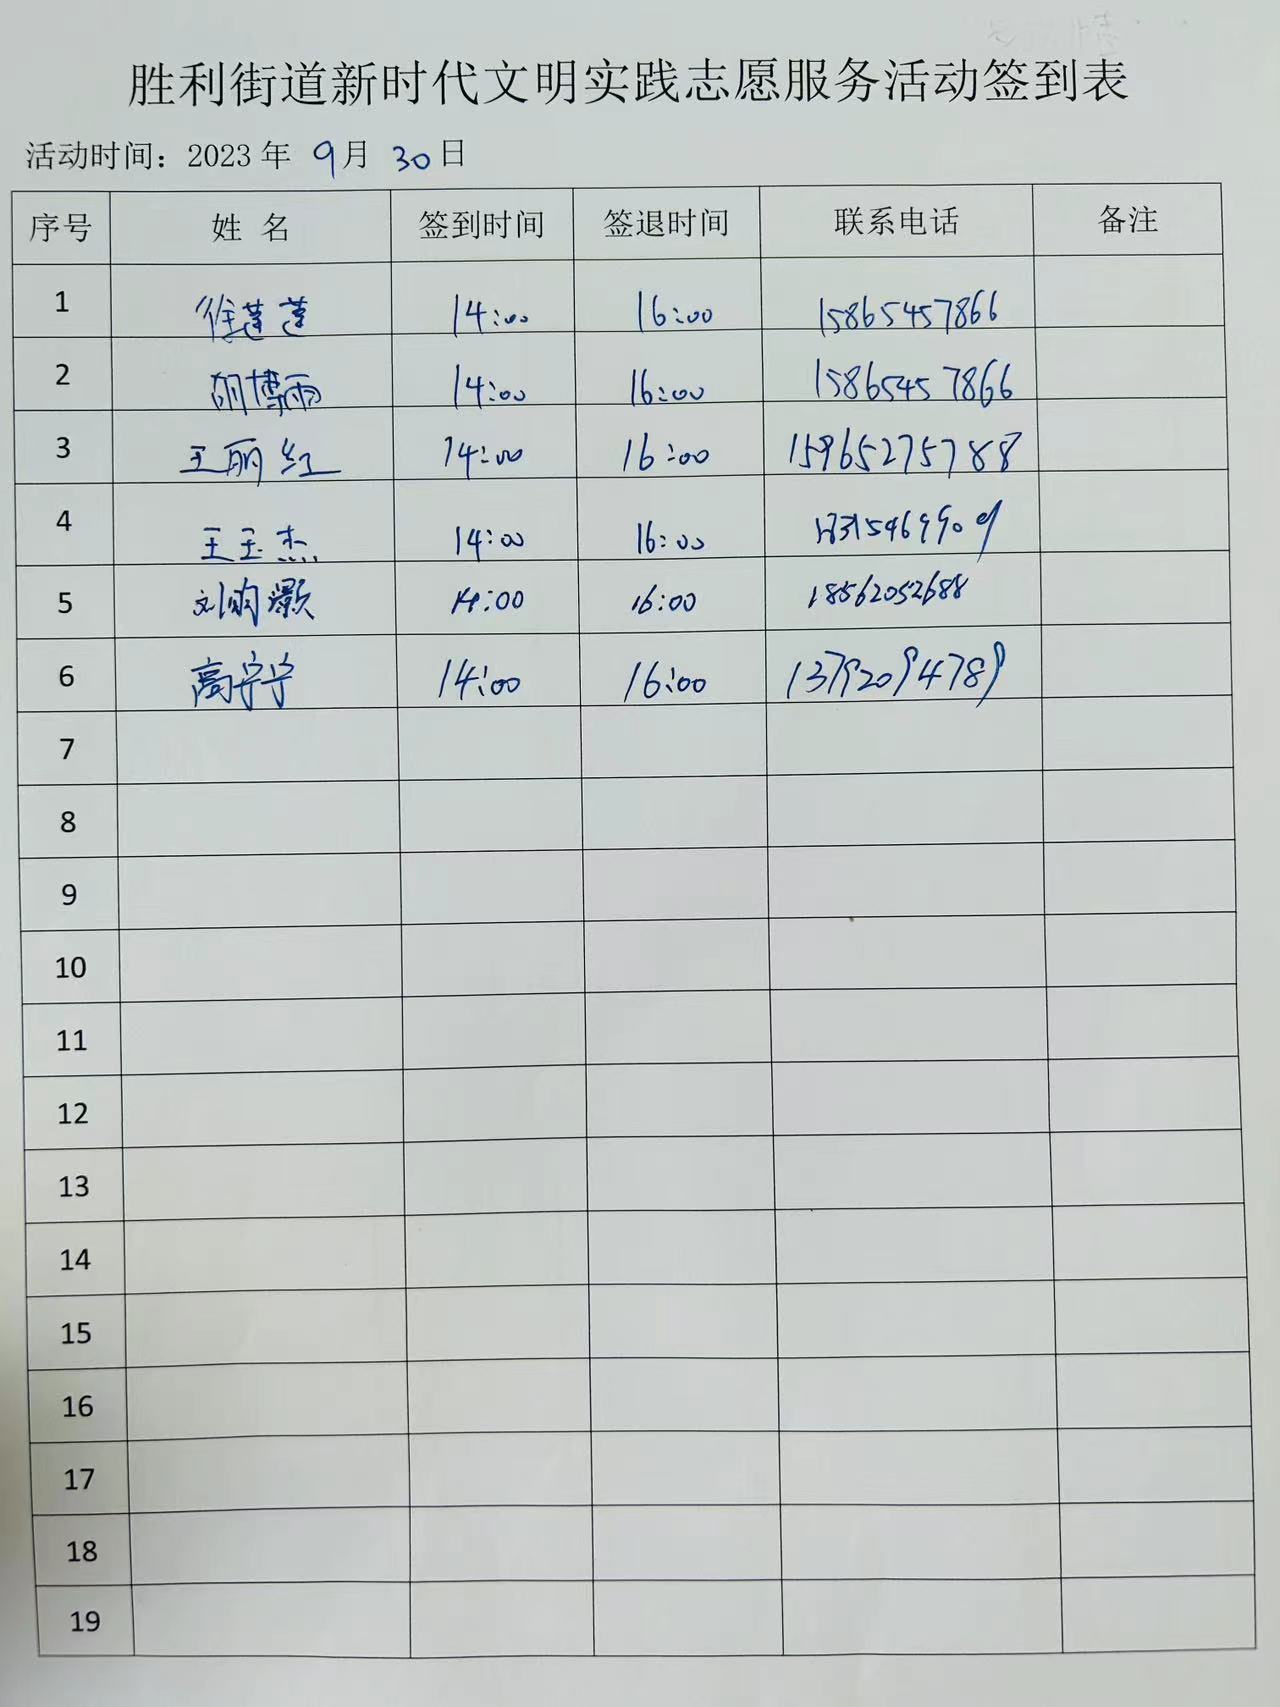 胜利街道新时代文明实践志愿服务活动签到表
活动时间：2023年 9月 30日
序号 姓 名 签到时间 签退时间 联系电话 备注
1 徐莲莲 14:00 16:00 15865457866
2 胡博雨 14:00 16:00 15865457866
3 王丽红 14:00 16:00 15965275788
4 王玉杰 14:00 16:00
5 刘 14:00 16:00 18562052688
6 高宁宁 14:00 16:00 13792094789
7
8
9
10
11
12
13
14
15
16
17
18
19